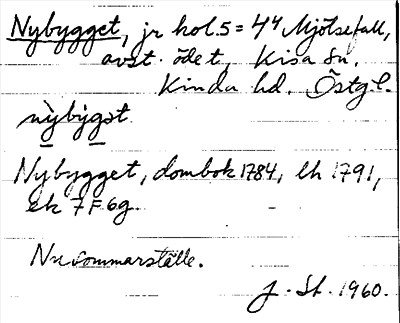 Nybygget, jr hol. 5 = 4⁴ Mjölsefall,
avst. ödet, Kisa sn,
Kinda hd. Östg. l.
nỳbýgət
Nybygget, dombok 1784, lh 1791,
ek 7 F 6g.
Nu sommarställe.
J. St. 1960.